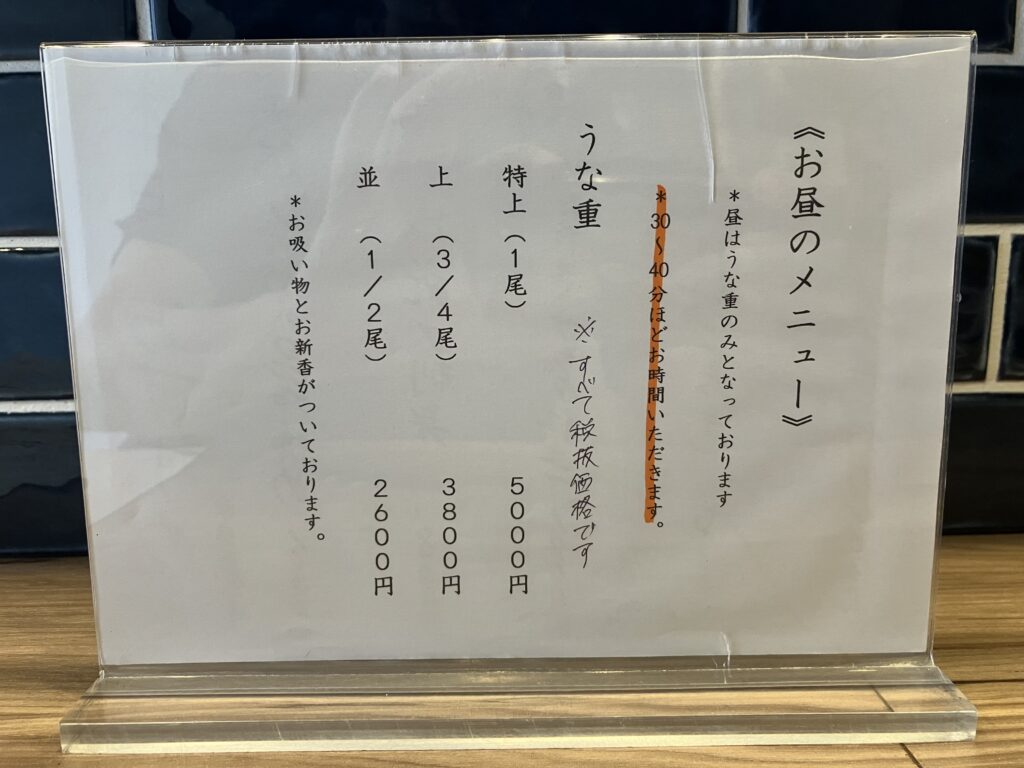 《お昼のメニュー》
＊昼はうな重のみとなっております
＊30～40分ほどお時間いただきます。
うな重 ※すべて税抜価格です
特上（1尾） 5000円
上 （3/4尾） 3800円
並 （1/2尾） 2600円
＊お吸い物とお新香がついております。